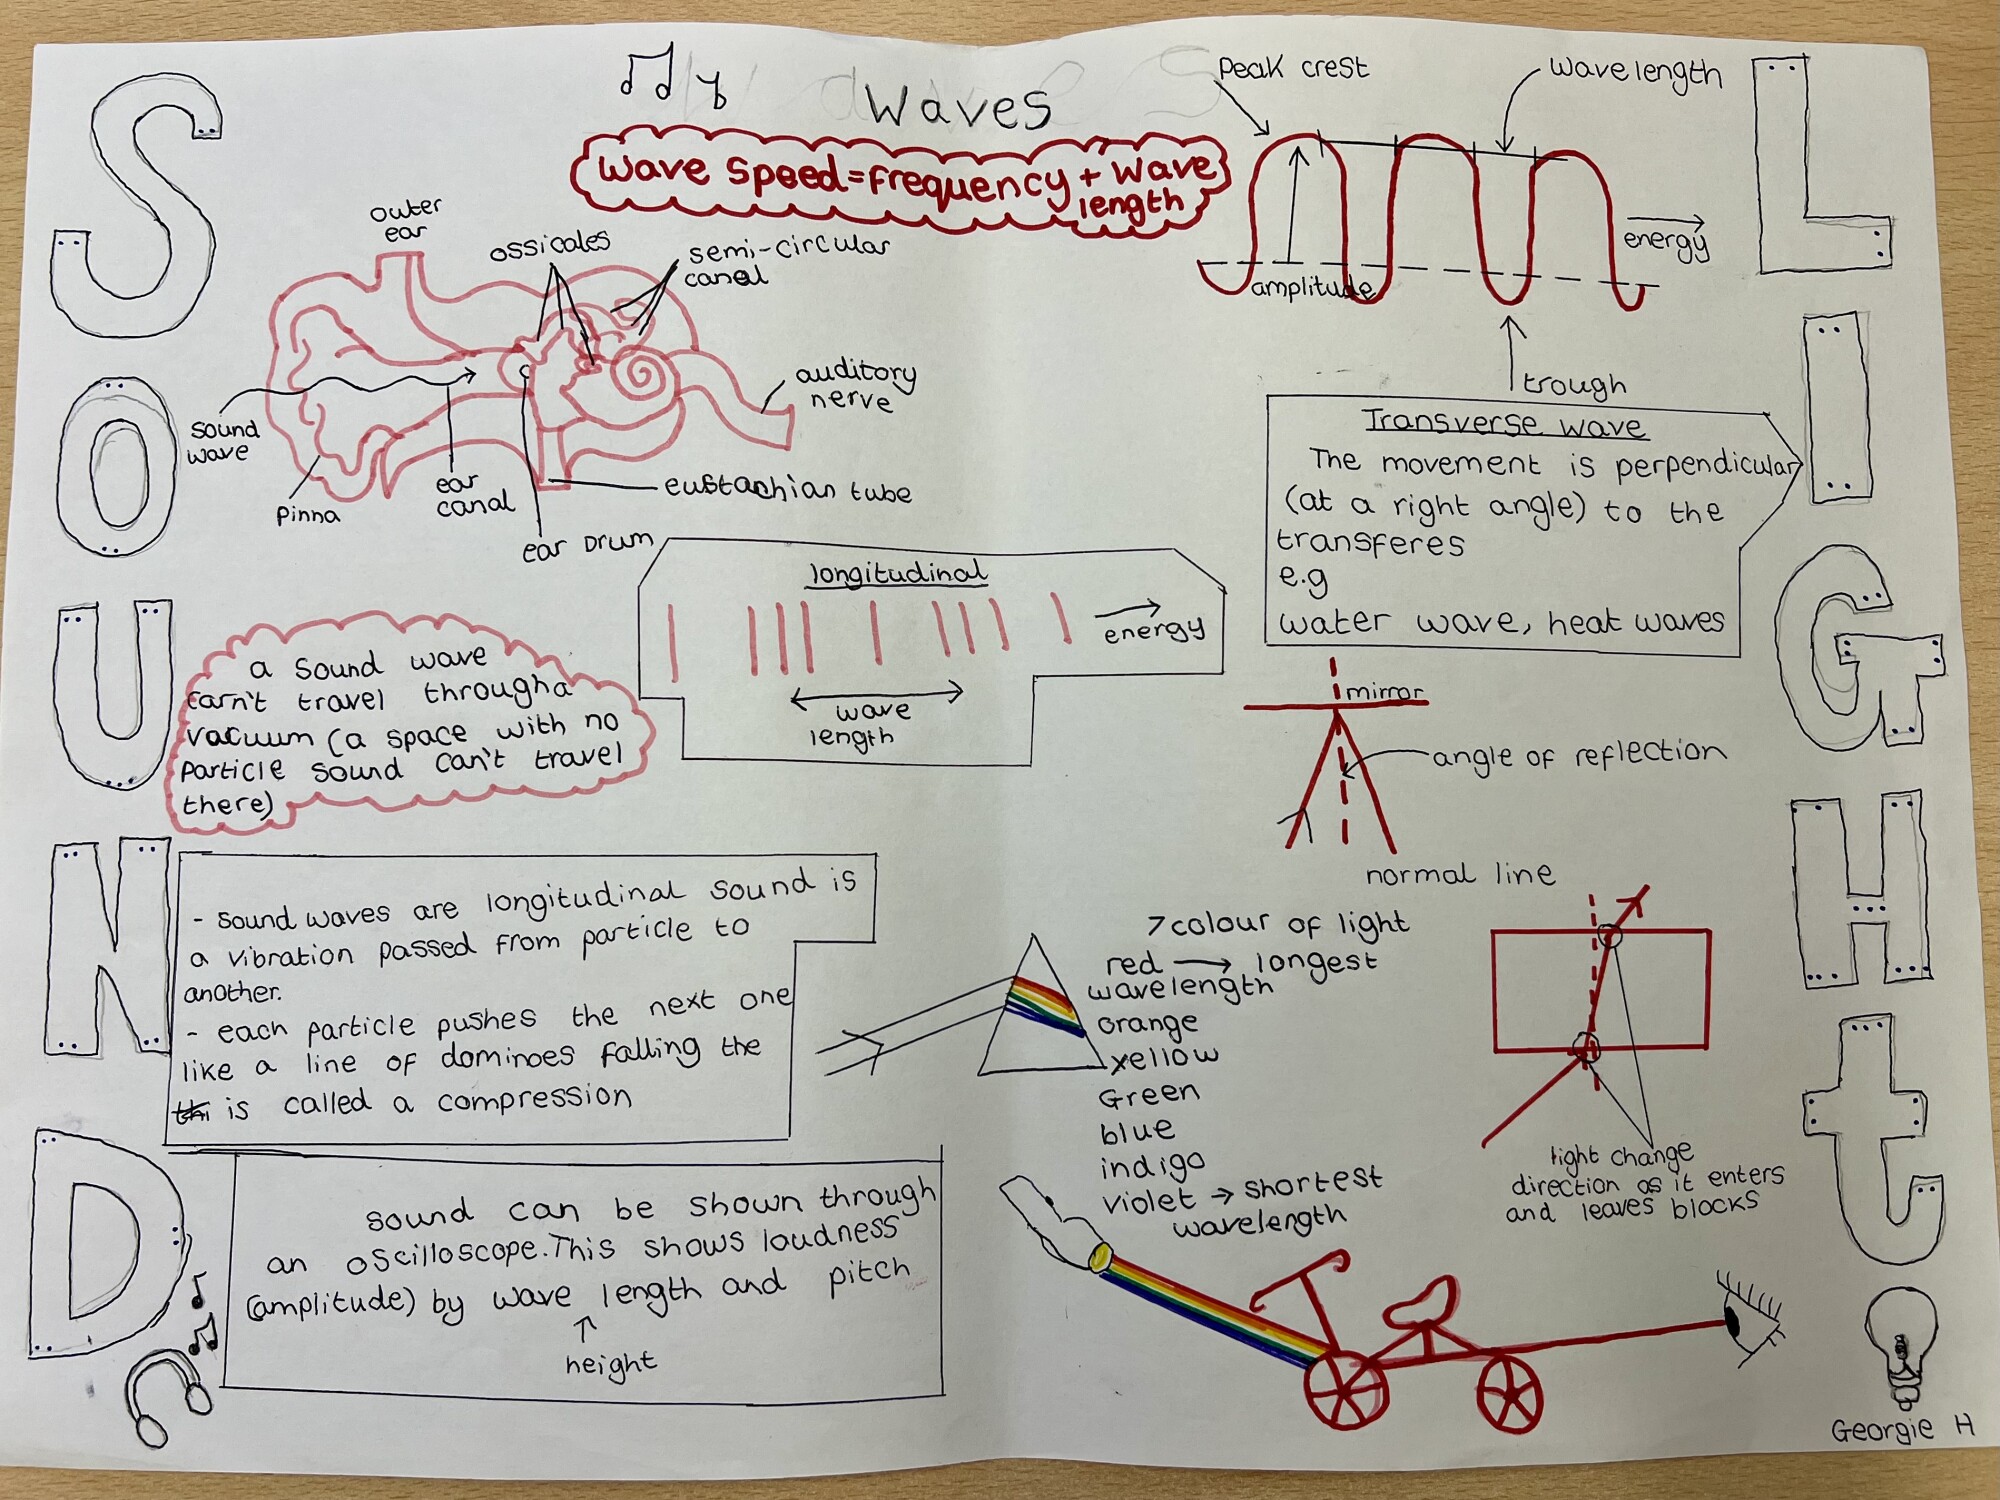 Waves
Wave Speed=frequency + Wave
length
SOUND
LIGHt
outer
ear
ossicales
semi-circular
canal
auditory
nerve
sound
wave
Pinna
ear
canal
ear Drum
eustachian tube
Peak crest
wavelength
energy
amplitude
trough
Transverse wave
The movement is perpendicular
(at a right angle) to the
transferes
e.g
water wave, heat waves
longitudinal
energy
wave
length
a sound wave
carn't travel through a
vacuum (a space with no
particle sound can't travel
there)
- sound waves are longitudinal sound is
a vibration passed from particle to
another.
- each particle pushes the next one
like a line of dominoes falling the
is called a compression
sound can be shown through
an oscilloscope. This shows loudness
(amplitude) by wave length and pitch
height
mirror
angle of reflection
normal line
7 colour of light
red → longest
wavelength
orange
yellow
Green
blue
indigo
violet → shortest
wavelength
light change
direction as it enters
and leaves blocks
Georgie H